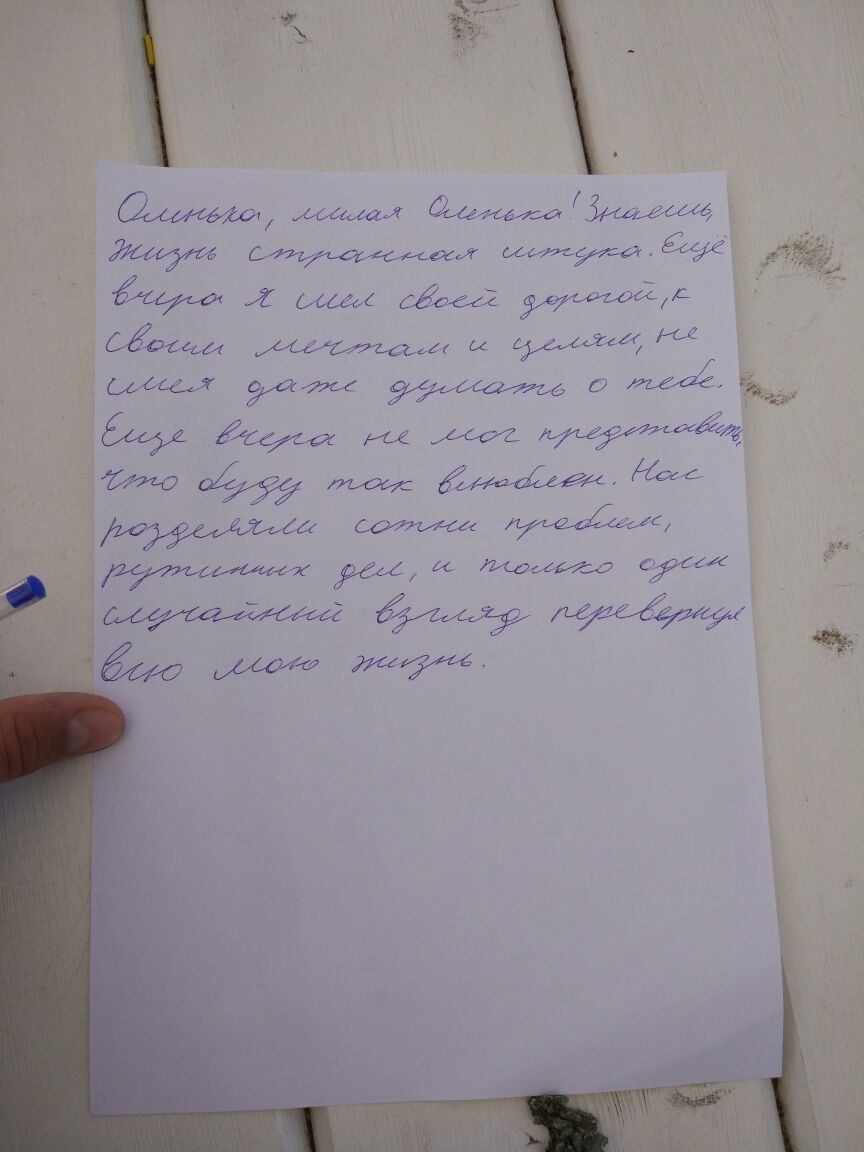 Оленька, милая Оленька! Знаешь,
жизнь странная штука. Ещё
вчера я шел своей дорогой, к
своим мечтам и целям, не
смея даже думать о тебе.
Еще вчера не мог представить,
что буду так влюблен. Нас
розделяли сотни проблем,
рутинных дел, и только один
случайный взгляд перевернул
всю мою жизнь.